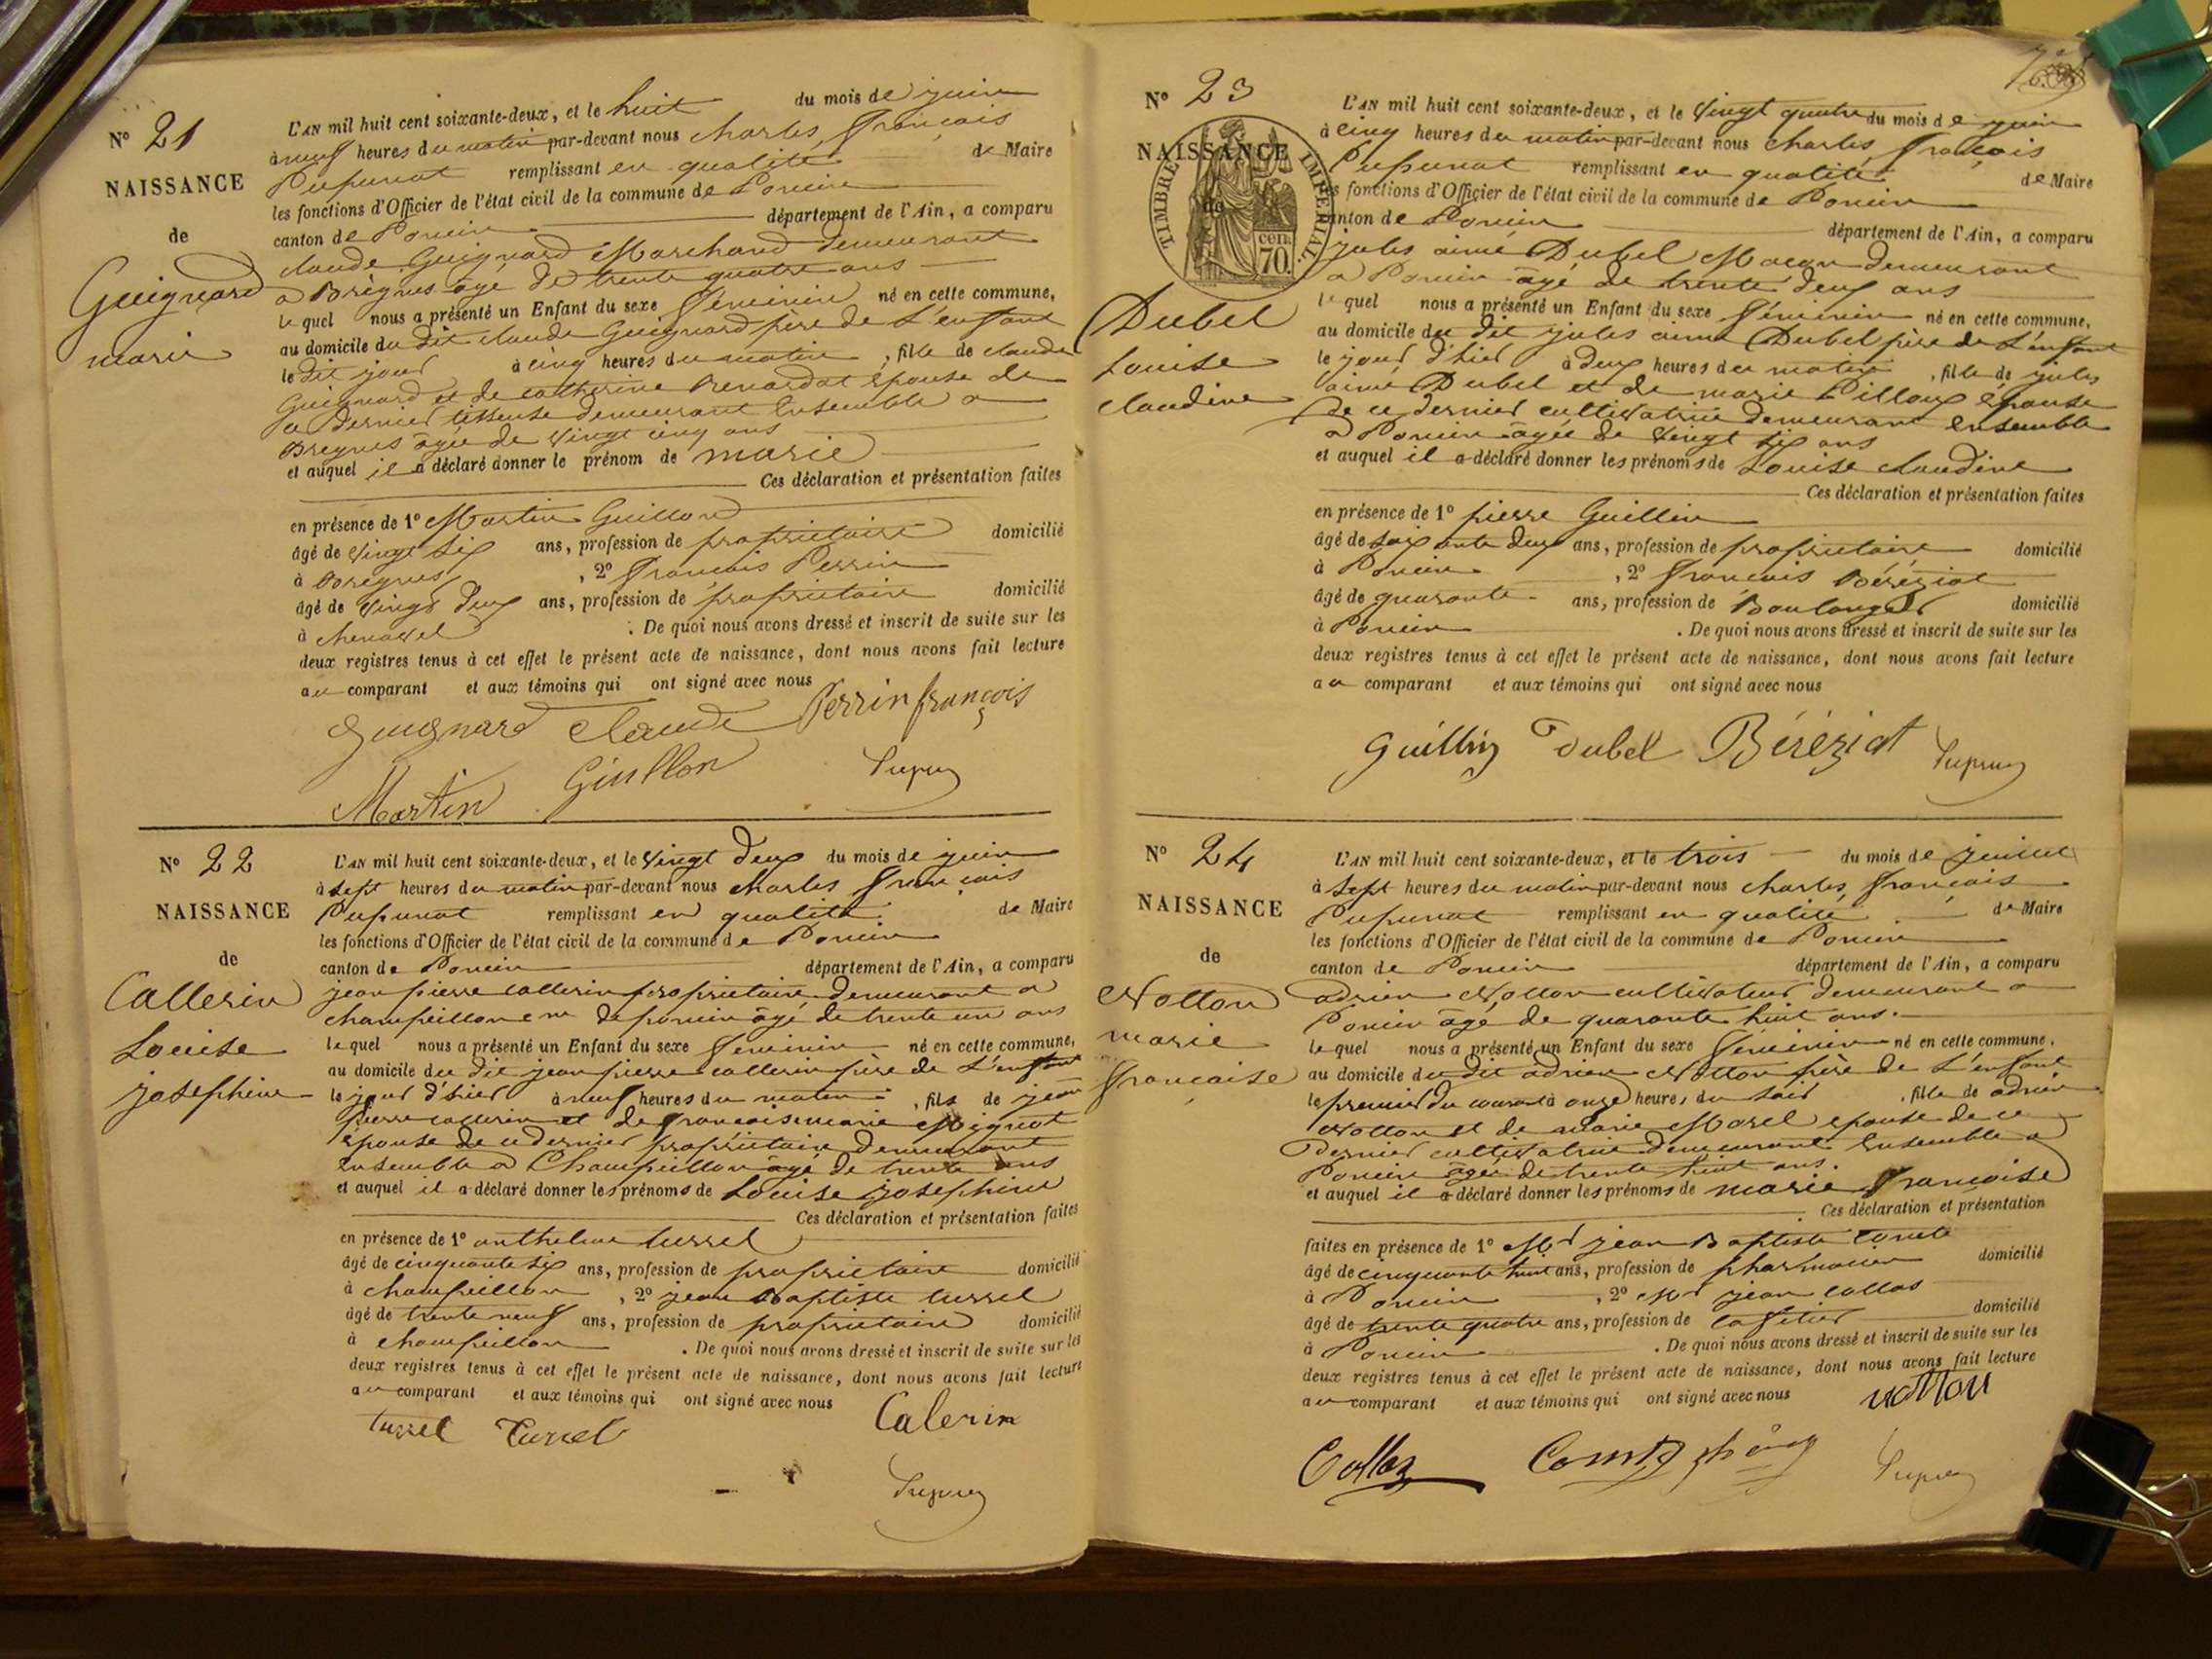 N° 21
NAISSANCE
de
Guignard
marie
L'AN mil huit cent soixante-deux, et le huit du mois de juin
à neuf heures du matin par-devant nous charles françois
Pupunat remplissant en qualité de Maire
les fonctions d'Officier de l'état civil de la commune de Poncin
canton de Poncin département de l'Ain, a comparu
claude Guignard Marchand demeurant
a Brègnes agé de trente quatre ans
lequel nous a présenté un Enfant du sexe féminin né en cette commune,
au domicile du dit claude Guignard père de L'enfant
le dit jour à cinq heures du matin, fille de claude
Guignard et de catherine Renardat épouse de
ce dernier tisseuse demeurant Ensemble a
Bregnes âgée de vingt cinq ans
et auquel il a déclaré donner le prénom de marie
Ces déclaration et présentation faites
en présence de 1° Martin Guillon
âgé de vingt six ans, profession de propriétaire domicilié
à Bregnes, 2° françois Perrin
âgé de vingt deux ans, profession de propriétaire domicilié
à chenavel. De quoi nous avons dressé et inscrit de suite sur les
deux registres tenus à cet effet le présent acte de naissance, dont nous avons fait lecture
au comparant et aux témoins qui ont signé avec nous
Guignard Claude Perrin françois
Martin Guillon
N° 22
NAISSANCE
de
Callerin
Louise
josephine
L'AN mil huit cent soixante-deux, et le vingt deux du mois de juin
à sept heures du matin par-devant nous charles françois
Pupunat remplissant en qualité de Maire
les fonctions d'Officier de l'état civil de la commune de Poncin
canton de Poncin département de l'Ain, a comparu
jean pierre callerin propriétaire demeurant a
champeillon cne de poncin âgé de trente un ans
lequel nous a présenté un Enfant du sexe féminin né en cette commune,
au domicile du dit jean pierre callerin père de L'enfant
le jour d'hier à neuf heures du matin, fils de jean
pierre callerin et de françoise marie Mignot
épouse de ce dernier propriétaire demeurant
Ensemble a Champeillon âgé de trente ans
et auquel il a déclaré donner les prénoms de Louise josephine
Ces déclaration et présentation faites
en présence de 1° anthelme turrel
âgé de cinquante six ans, profession de propriétaire domicilié
à champeillon, 2° jean Baptiste turrel
âgé de trente neuf ans, profession de propriétaire domicilié
à champeillon. De quoi nous avons dressé et inscrit de suite sur les
deux registres tenus à cet effet le présent acte de naissance, dont nous avons fait lecture
au comparant et aux témoins qui ont signé avec nous
turrel Turrel Calerin
N° 23
NAISSANCE
de
TIMBRE IMPÉRIAL.
70 cen.
Dubel
Louise
claudine
L'AN mil huit cent soixante-deux, et le vingt quatre du mois de juin
à cinq heures du matin par-devant nous charles françois
Pupunat remplissant en qualité de Maire
les fonctions d'Officier de l'état civil de la commune de Poncin
canton de Poncin département de l'Ain, a comparu
jules aimé Dubel Maçon demeurant
a Poncin âgé de trente deux ans
lequel nous a présenté un Enfant du sexe féminin né en cette commune,
au domicile du dit jules aimé Dubel père de L'enfant
le jour d'hier à deux heures du matin, fille de jules
aimé Dubel et de marie Pilloux épouse
de ce dernier cultivatrice demeurant Ensemble
a Poncin âgée de vingt six ans
et auquel il a déclaré donner les prénoms de Louise claudine
Ces déclaration et présentation faites
en présence de 1° pierre Guillin
âgé de soixante deux ans, profession de propriétaire domicilié
à Poncin, 2° françois Béréziat
âgé de quarante ans, profession de Boulanger domicilié
à Poncin. De quoi nous avons dressé et inscrit de suite sur les
deux registres tenus à cet effet le présent acte de naissance, dont nous avons fait lecture
au comparant et aux témoins qui ont signé avec nous
Guillin Dubel Béréziat
N° 24
NAISSANCE
de
Notton
marie
françoise
L'AN mil huit cent soixante-deux, et le trois du mois de juillet
à sept heures du matin par-devant nous charles françois
Pupunat remplissant en qualité de Maire
les fonctions d'Officier de l'état civil de la commune de Poncin
canton de Poncin département de l'Ain, a comparu
adrien Notton cultivateur demeurant a
Poncin âgé de quarante huit ans.
lequel nous a présenté un Enfant du sexe féminin né en cette commune,
au domicile du dit adrien Notton père de L'enfant
le premier du courant à onze heures du soir, fille de adrien
Notton et de marie Morel épouse de ce
Dernier cultivatrice demeurant Ensemble a
Poncin âgée de trente huit ans.
et auquel il a déclaré donner les prénoms de marie françoise
Ces déclaration et présentation
faites en présence de 1° Mr jean Baptiste Comte
âgé de cinquante huit ans, profession de pharmacien domicilié
à Poncin, 2° Mr jean collas
âgé de trente quatre ans, profession de cafetier domicilié
à Poncin. De quoi nous avons dressé et inscrit de suite sur les
deux registres tenus à cet effet le présent acte de naissance, dont nous avons fait lecture
au comparant et aux témoins qui ont signé avec nous notton